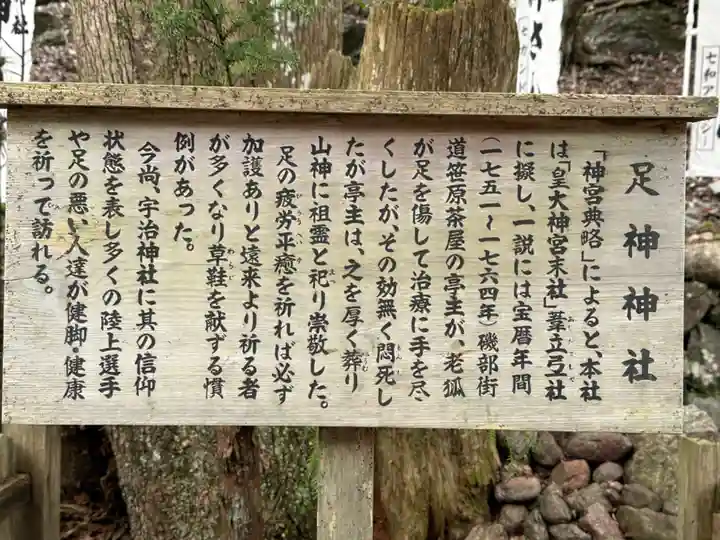 足神神社
「神宮典略」によると、本社
は「皇大神宮末社」葦立弓社
に擬し、一説には宝暦年間
(一七五一〜一七六四年)磯部街
道笹原茶屋の亭主が、老狐
が足を傷して治療に手を尽
くしたが、その効無く悶死し
たが亭主は、之を厚く葬り
山神に祖霊と祀り崇敬した。
足の疲労平癒を祈れば必ず
加護ありと遠来より祈る者
が多くなり草鞋を献ずる慣
例があった。
今尚、宇治神社に其の信仰
状態を表し多くの陸上選手
や足の悪い人達が健脚・健康
を祈って訪れる。